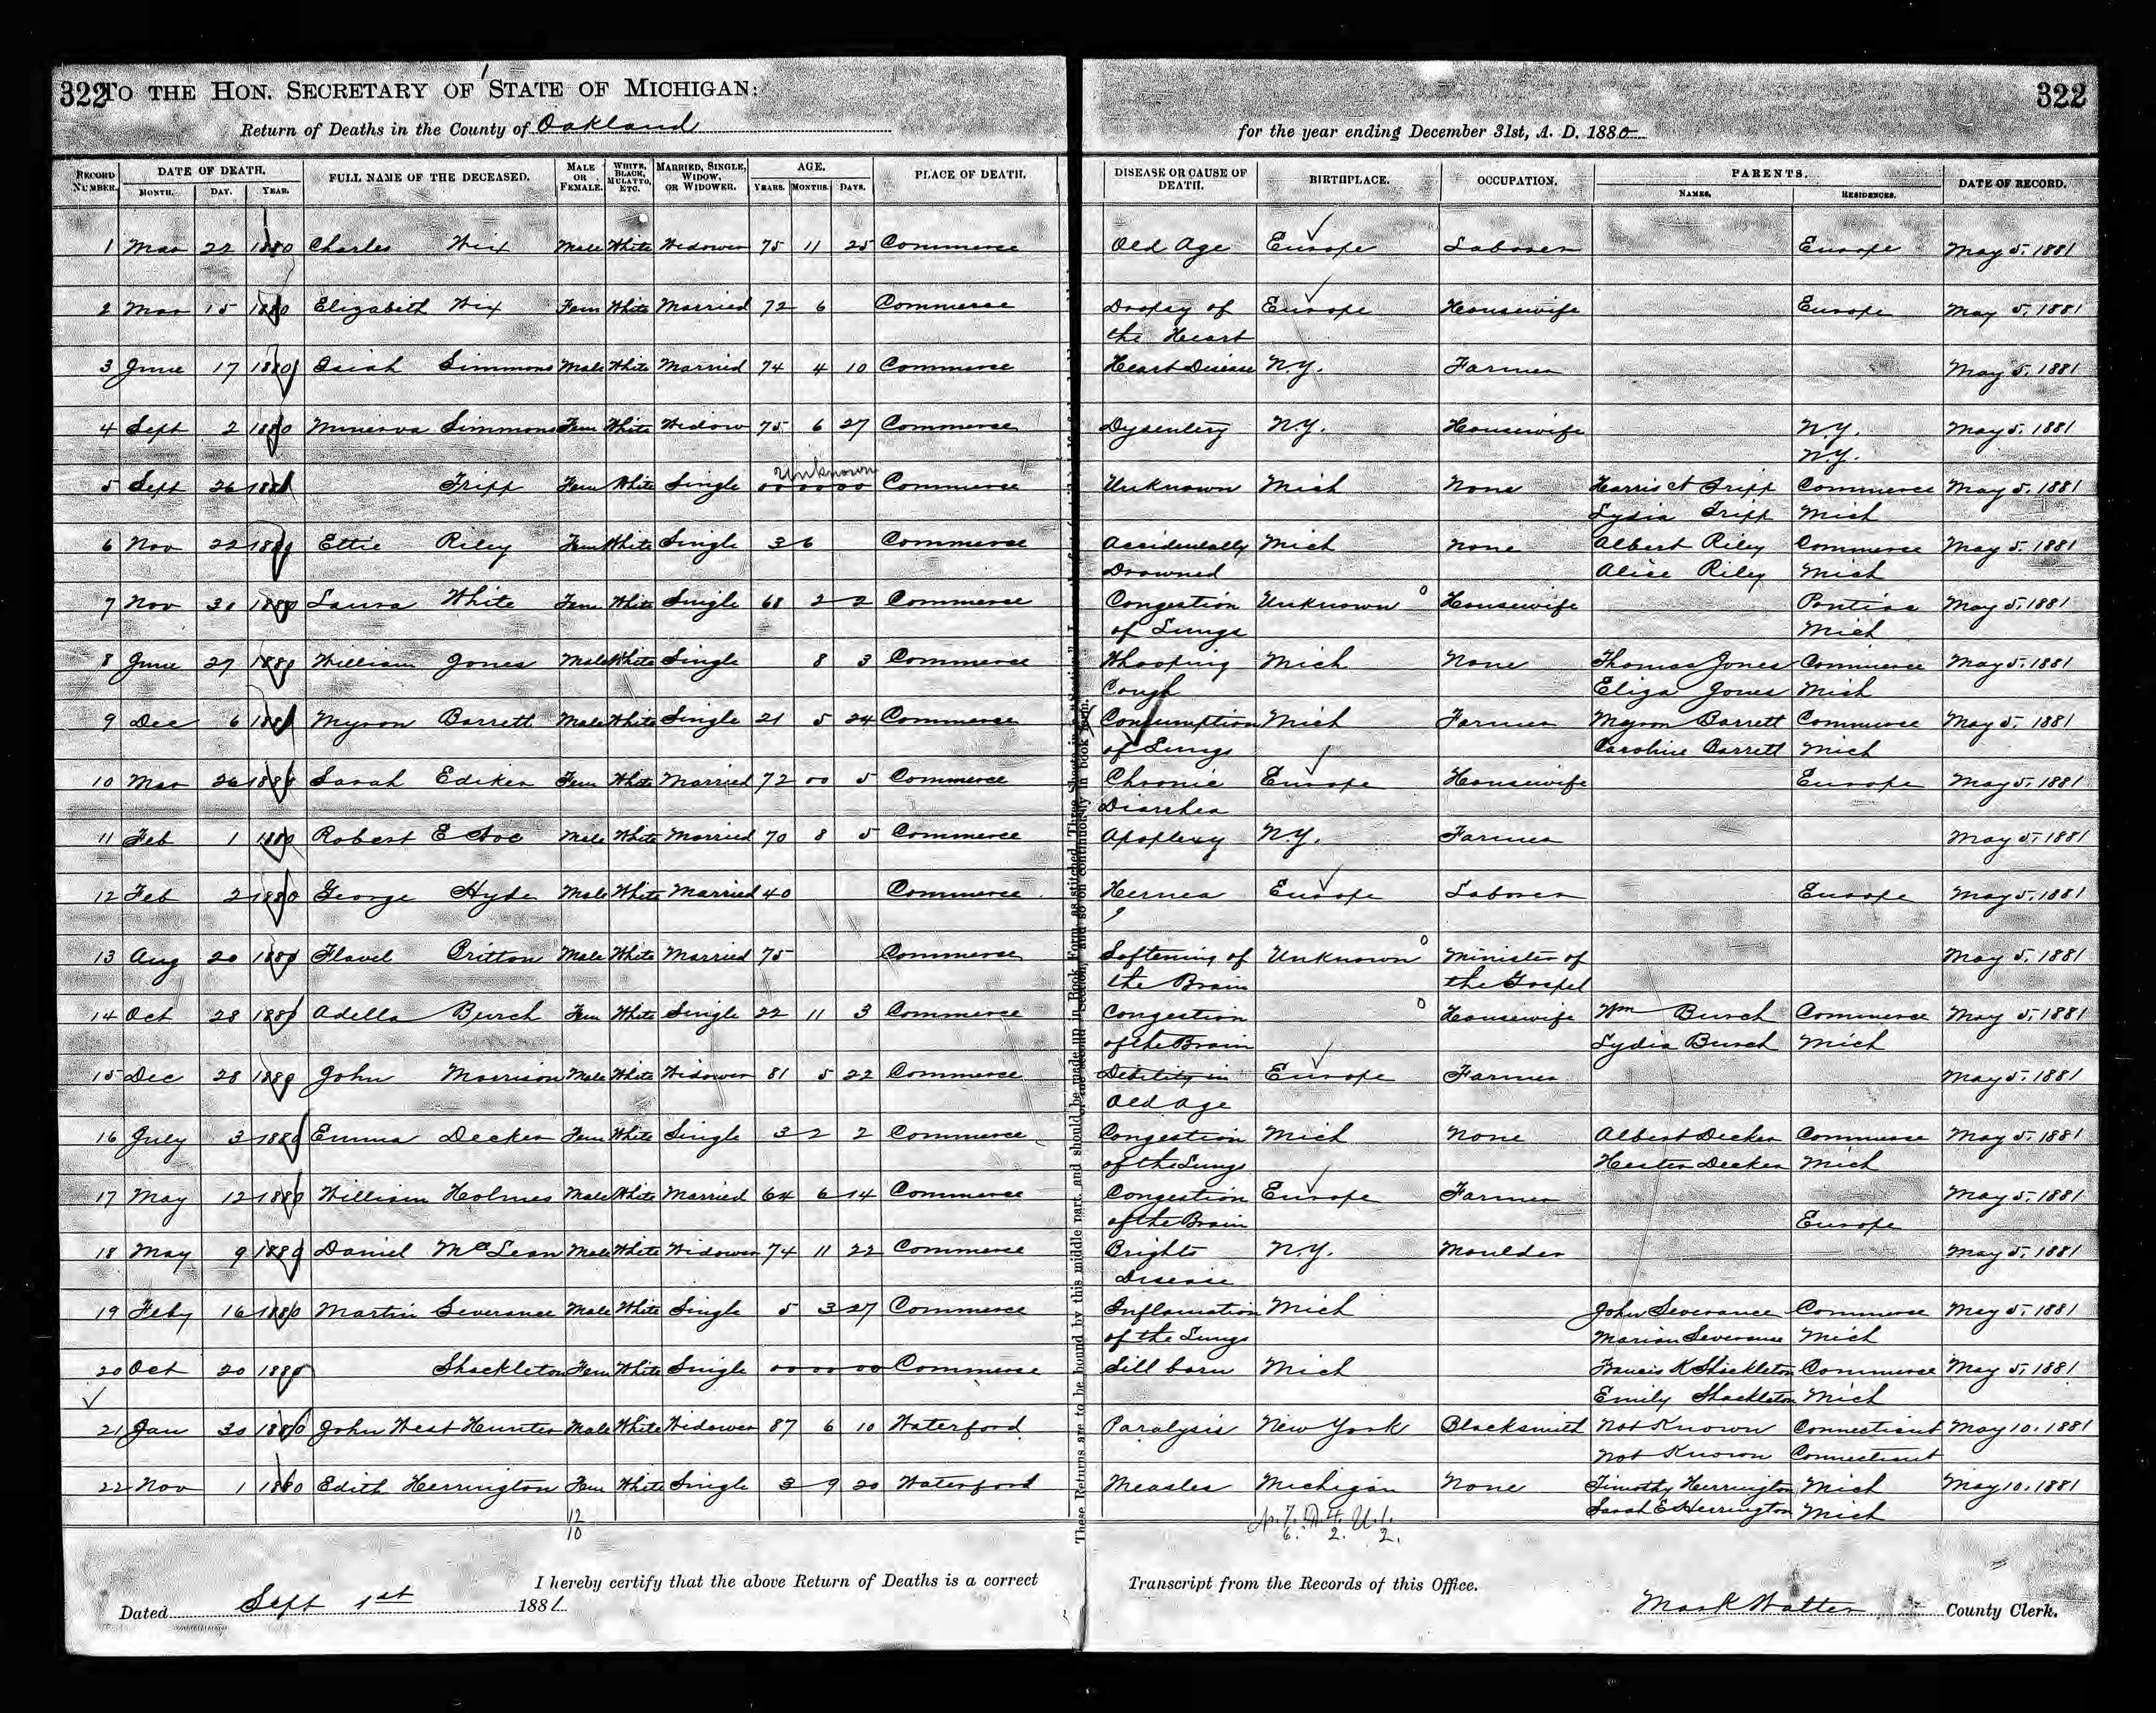 322 TO THE HON. SECRETARY OF STATE OF MICHIGAN: 322
Return of Deaths in the County of Oakland for the year ending December 31st, A. D. 1880
RECORD NUMBER. DATE OF DEATH. MONTH. DAY. YEAR. FULL NAME OF THE DECEASED. MALE OR FEMALE. WHITE, BLACK, MULATTO, ETC. MARRIED, SINGLE, WIDOW, OR WIDOWER. AGE. YEARS. MONTHS. DAYS. PLACE OF DEATH. DISEASE OR CAUSE OF DEATH. BIRTHPLACE. OCCUPATION. PARENTS. NAMES. RESIDENCES. DATE OF RECORD.
1 Mar 22 1880 Charles Wix Male White Widower 75 11 25 Commerce Old Age Europe Laborer Europe May 5. 1881
2 Mar 15 1880 Elizabeth Wix Fem White Married 72 6 Commerce Dropsy of Europe Housewife Europe May 5. 1881
the Heart
3 June 17 1880 Isiah Simmons Male White Married 74 4 10 Commerce Heart Disease N.Y. Farmer May 5. 1881
4 Sept 2 1880 Minerva Simmons Fem White Widow 75 6 27 Commerce Dysentery N.Y. Housewife N.Y. May 5. 1881
N.Y.
Unknown
5 Sept 26 1880 Tripp Fem White Single 00 00 00 Commerce Unknown Mich None Harris A Tripp Commerce May 5. 1881
Lydia Tripp Mich
6 Nov 22 1880 Ettie Riley Fem White Single 3 6 Commerce Accidentally Mich None Albert Riley Commerce May 5. 1881
Drowned Alice Riley Mich
7 Nov 30 1880 Laura White Fem White Single 68 2 2 Commerce Congestion Unknown Housewife Pontiac May 5. 1881
of Lungs Mich
8 June 27 1880 William Jones Male White Single 8 3 Commerce Whooping Mich None Thomas Jones Commerce May 5. 1881
Cough Eliza Jones Mich
9 Dec 6 1880 Myron Barrett Male White Single 21 5 24 Commerce Consumption Mich Farmer Myron Barrett Commerce May 5 1881
of Lungs Caroline Barrett Mich
10 Mar 26 1880 Sarah Ediker Fem White Married 72 00 5 Commerce Chronic Europe Housewife Europe May 5. 1881
Diarrhea
11 Feb 1 1880 Robert E Male White Married 70 8 5 Commerce Apoplexy N.Y. Farmer May 5. 1881
12 Feb 2 1880 George Hyde Male White Married 40 Commerce Hernea Europe Laborer Europe May 5. 1881
13 Aug 20 1880 Flavel Britton Male White Married 75 Commerce Softening of Unknown Minister of May 5. 1881
the Brain the Gospel
14 Oct 28 1880 Adella Burch Fem White Single 22 11 3 Commerce Congestion Housewife Wm Burch Commerce May 5. 1881
of the Brain Lydia Burch Mich
15 Dec 28 1880 John Morrison Male White Widower 81 5 22 Commerce Debility in Europe Farmer May 5. 1881
Old Age
16 July 3 1880 Emma Decker Fem White Single 3 2 2 Commerce Congestion Mich None Albert Decker Commerce May 5. 1881
of the Lungs Hester Decker Mich
17 May 12 1880 William Holmes Male White Married 64 6 14 Commerce Congestion Europe Farmer May 5. 1881
of the Brain Europe
18 May 9 1880 Daniel McLean Male White Widower 74 11 22 Commerce Brights N.Y. Moulder May 5. 1881
Disease
19 Feby 16 1880 Martin Severance Male White Single 5 3 27 Commerce Inflamation Mich John Severance Commerce May 5. 1881
of the Lungs Marion Severance Mich
20 Oct 20 1880 Shackleton Fem White Single 00 00 00 Commerce Sill born Mich Francis K Shackleton Commerce May 5. 1881
Emily Shackleton Mich
21 Jan 30 1880 John West Hunter Male White Widower 87 6 10 Waterford Paralysis New York Blacksmith Not Known Connecticut May 10. 1881
Not Known Connecticut
22 Nov 1 1880 Edith Herrington Fem White Single 3 9 20 Waterford Measles Michigan None Timothy Herrington Mich May 10. 1881
Sarah E Herrington Mich
12
10
N. 7. A 4. U. 1.
6. 2. 2.
I hereby certify that the above Return of Deaths is a correct Transcript from the Records of this Office.
Dated Sept 1st 1881. Mark Walter County Clerk.